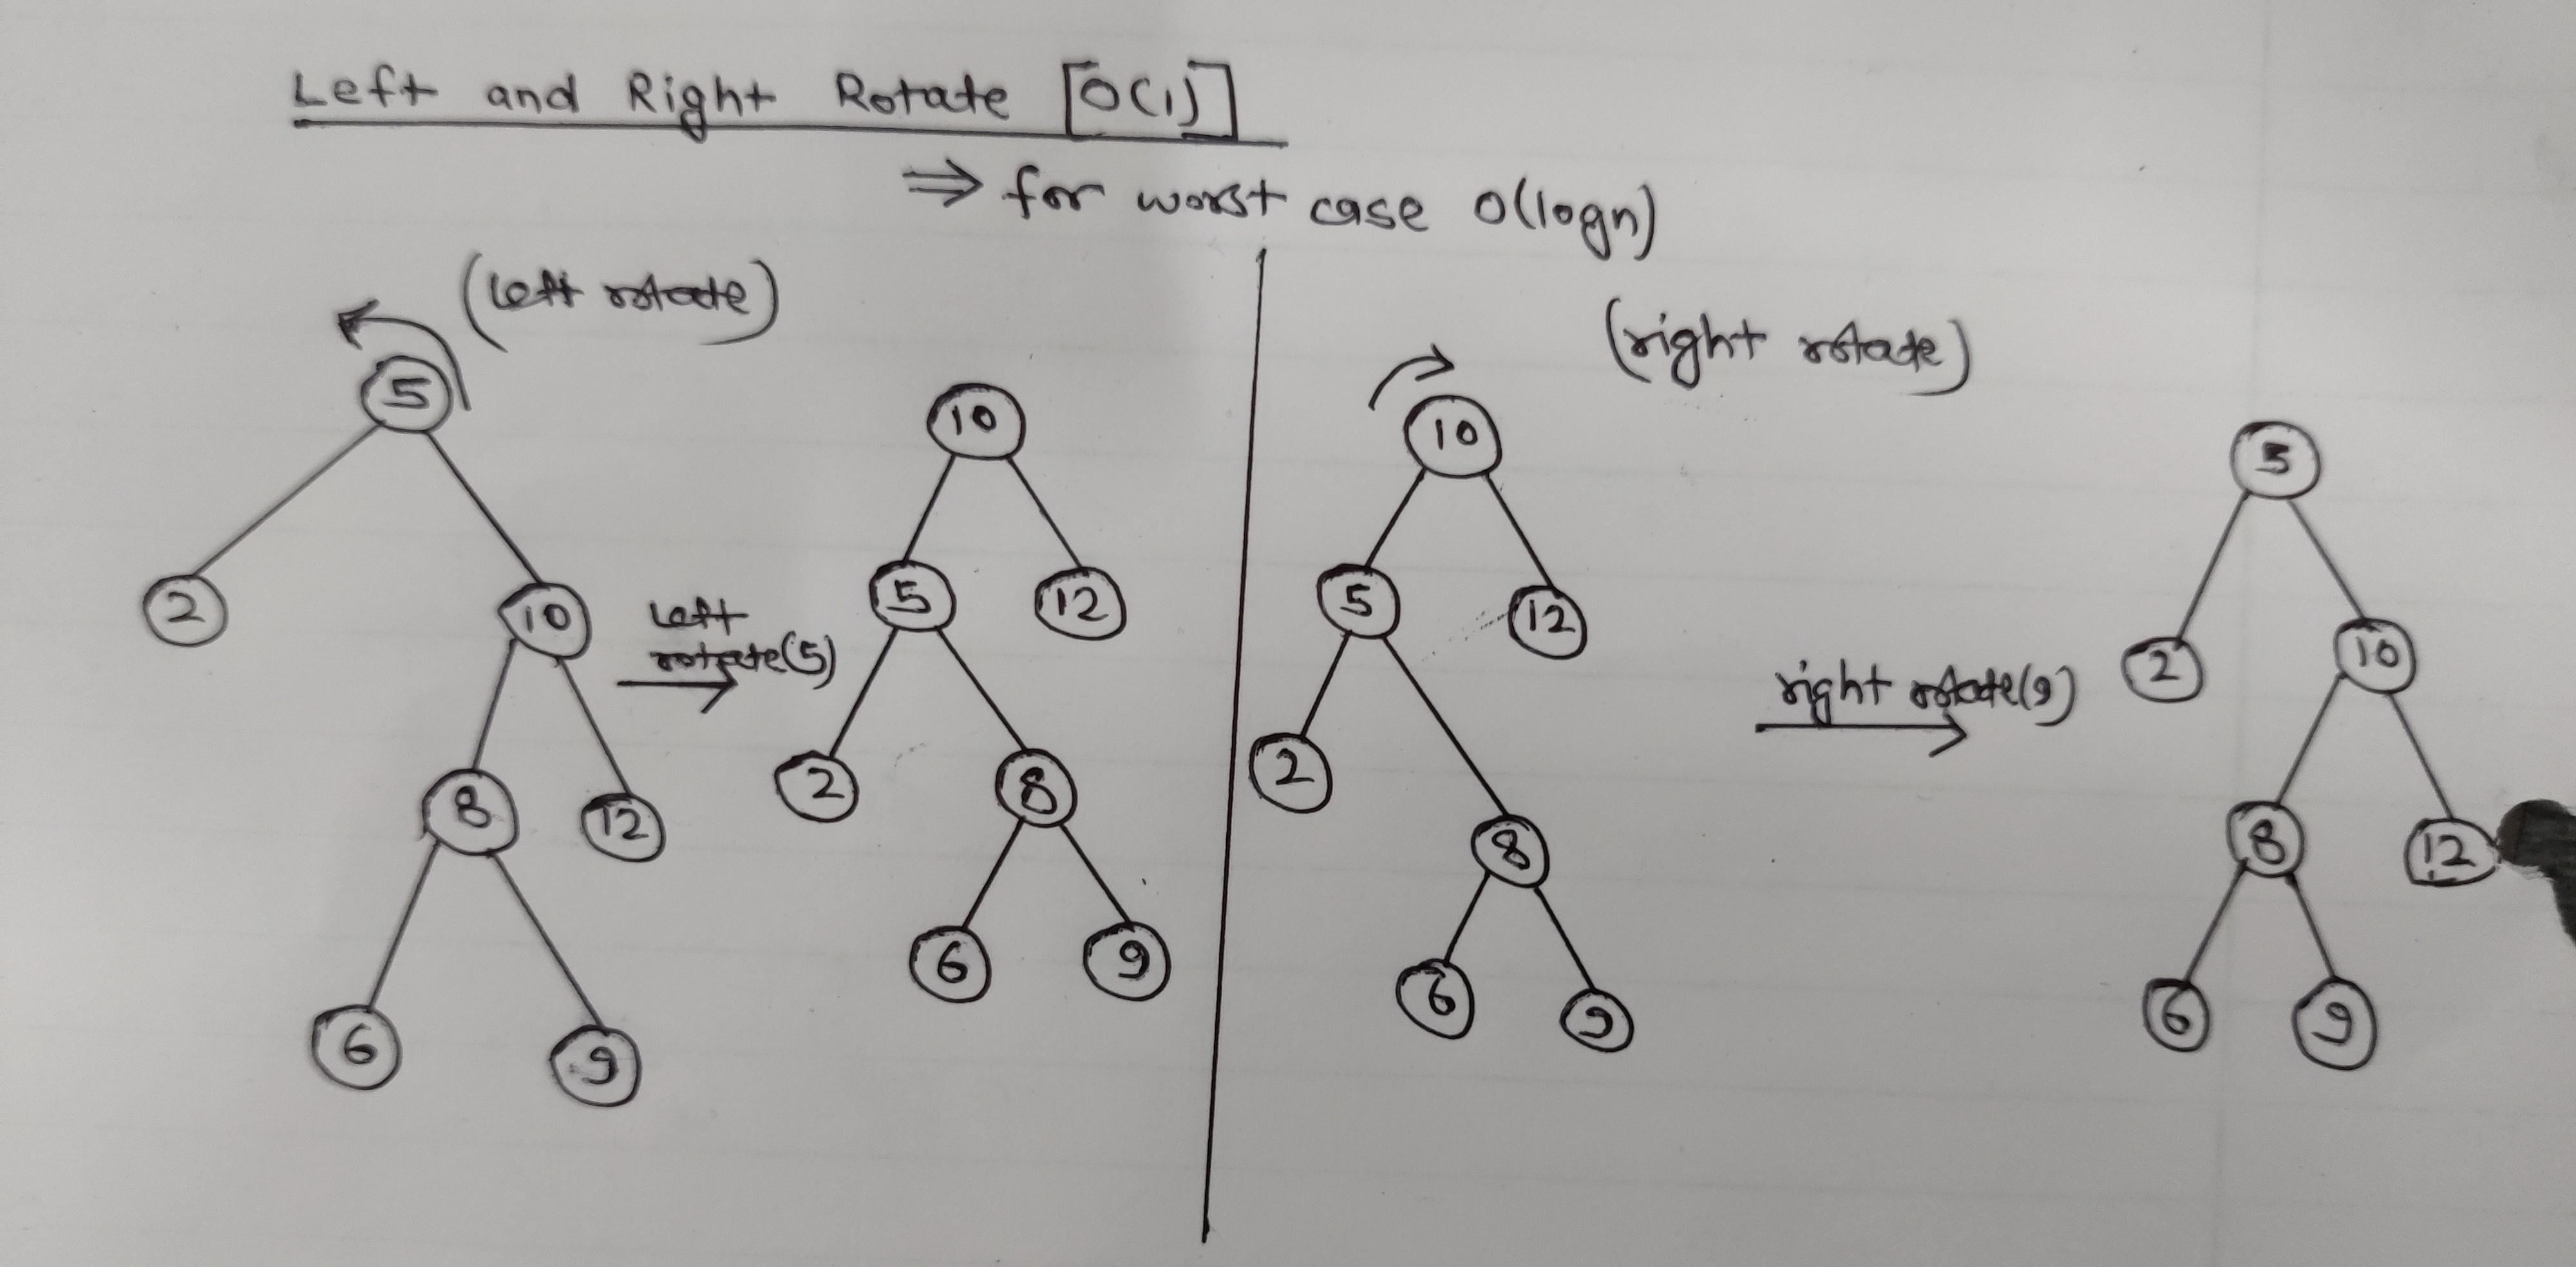 Left and Right Rotate [O(1)]
⇒ for worst case O(logn)
(left rotate)
5
2
10
8
12
6
9
left
rotate(5)
10
5
12
2
8
6
9
(right rotate)
10
5
12
2
8
6
9
right rotate(9)
5
2
10
8
12
6
9